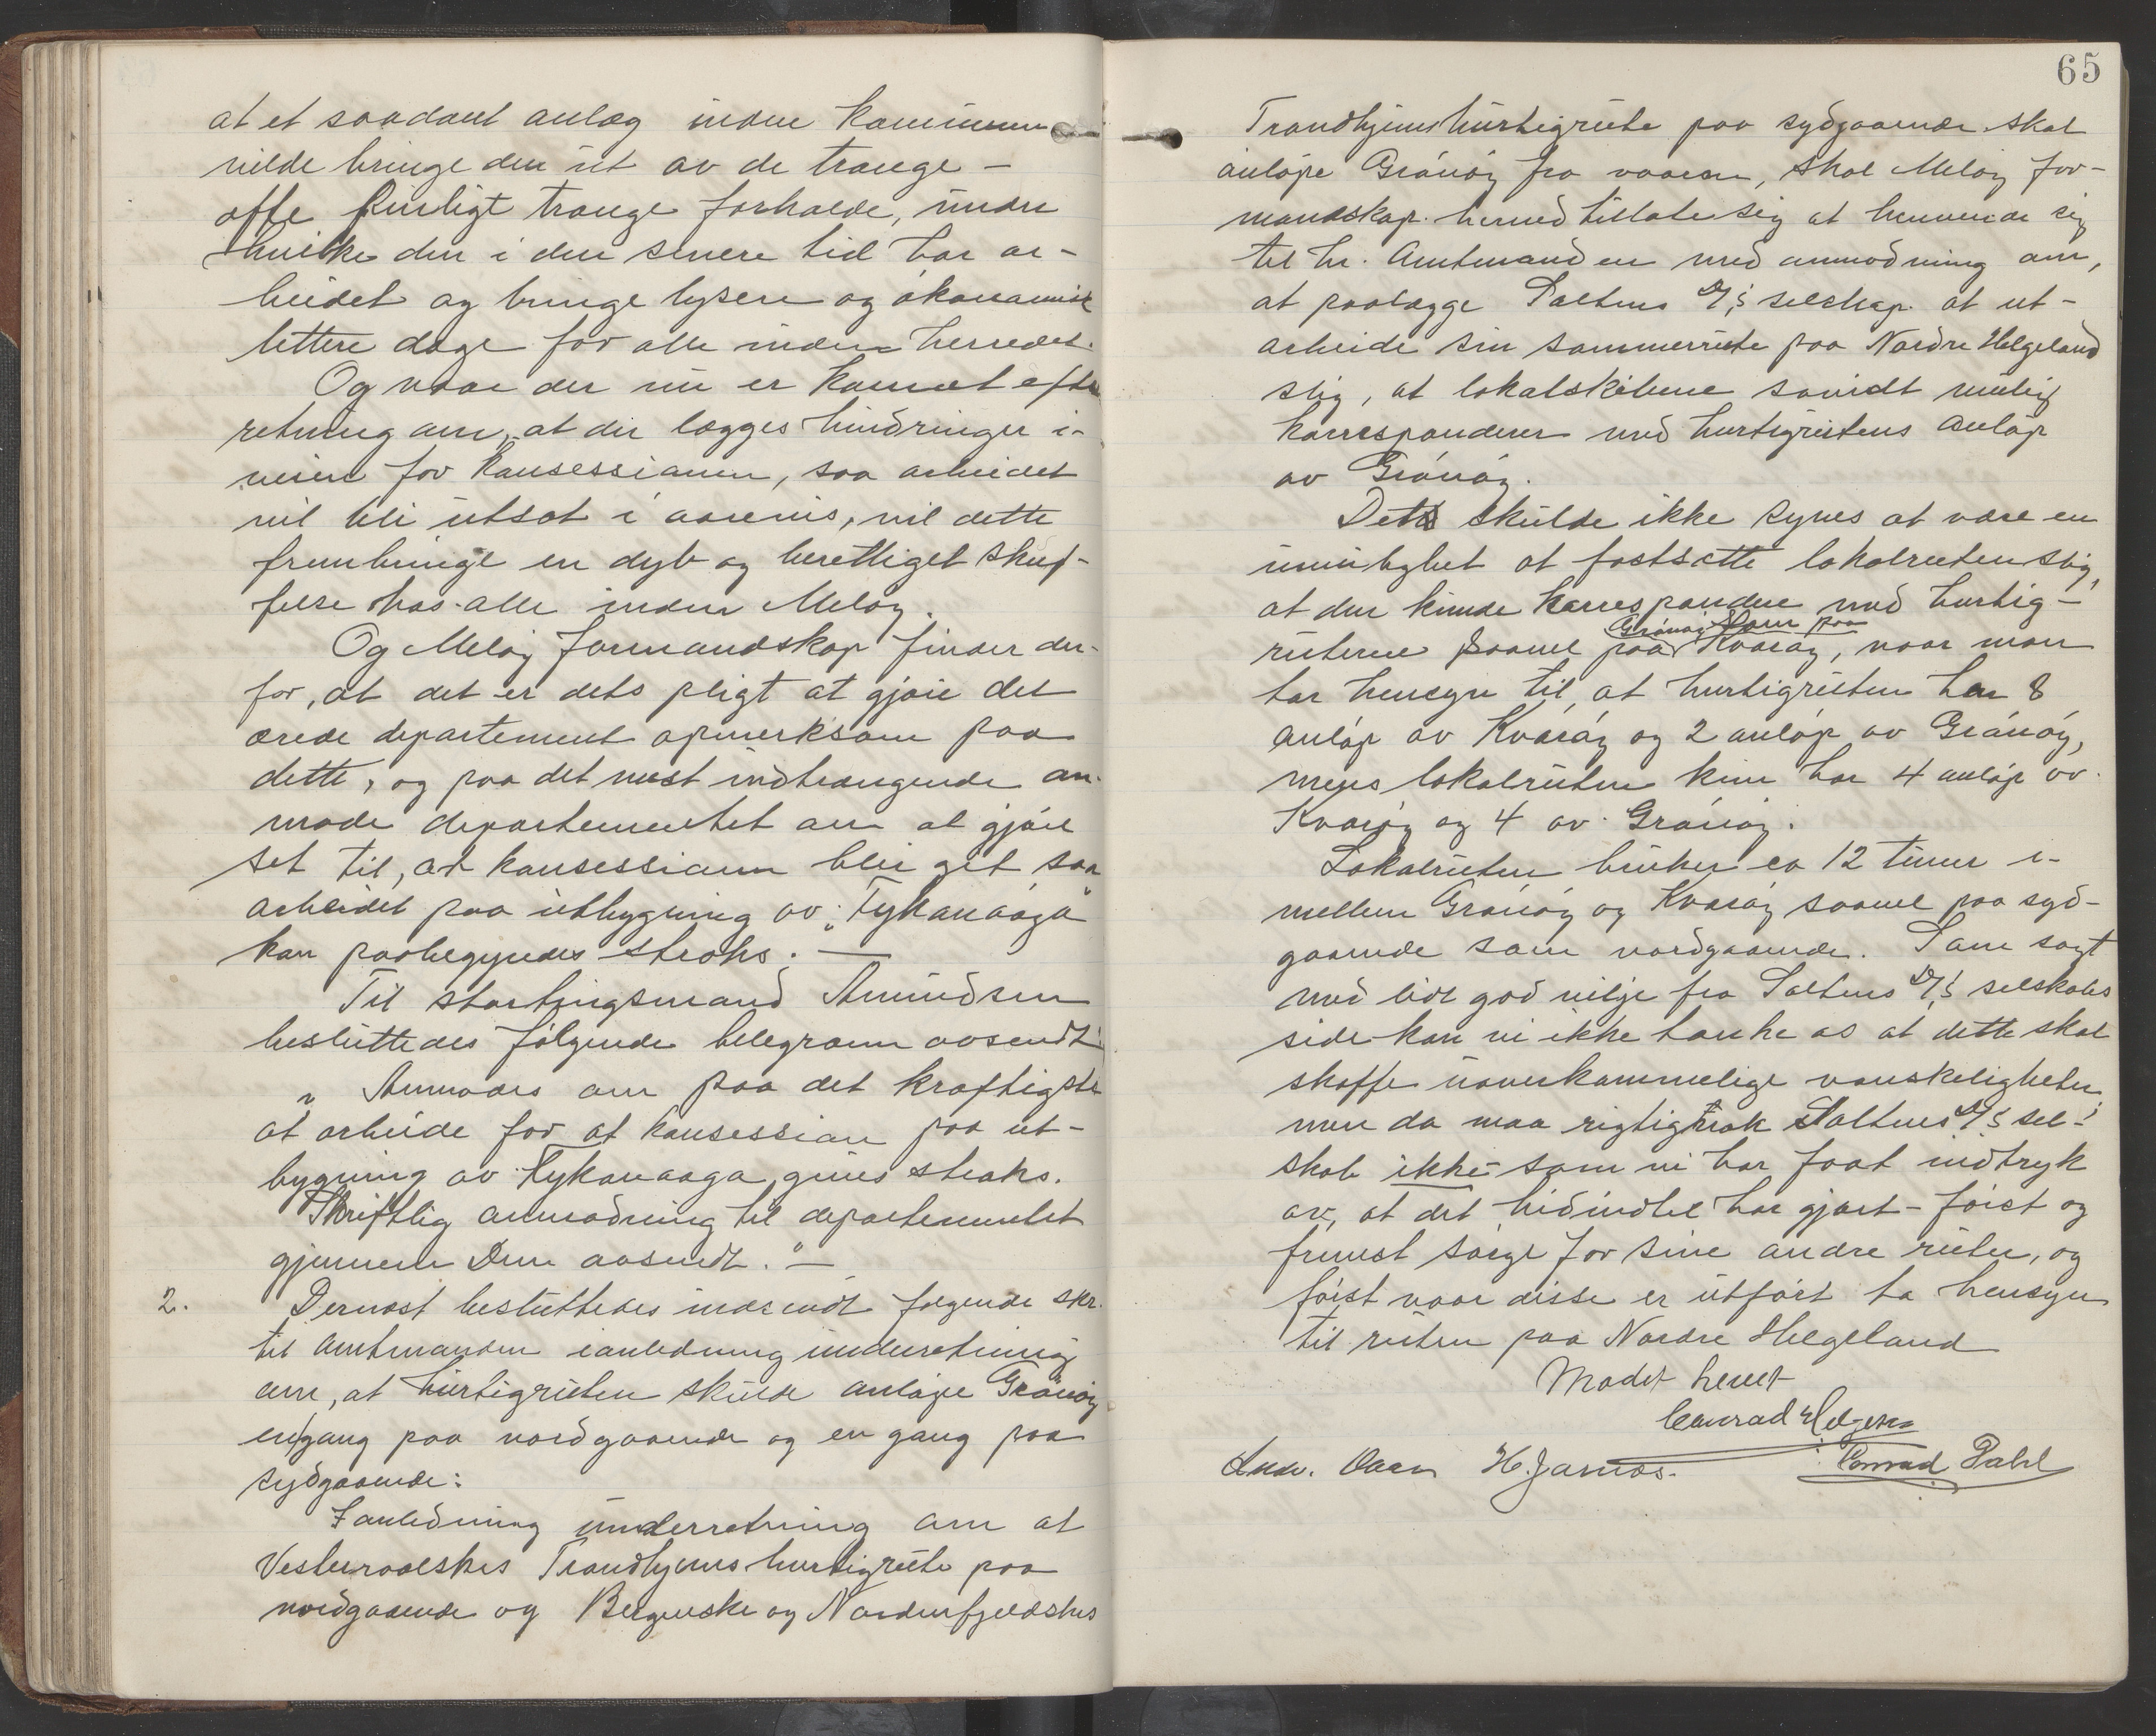 at et saadant anlæg inden kommunen
vilde bringe den ut av de trange –
ofte pinligt trange forholde, under
hvilke den i den senere tid har ar-
beidet og bringe lysere og økonomisk
lettere dage for alle inden herredet.
Og naar der nu er kommet efter
retning om, at der lægges hindringer i-
veien for konsessionen, saa arbeidet
vil bli utsat i aarevis, vil dette
frembringe en dyb og berettiget skuf-
felse hos alle inden Meløy.
Og Meløy formandskap finder der-
for, at det er dets pligt at gjøre det
ærede departement opmerksom paa
dette, og paa det mest indtrængende an-
mode departementet om at gjøre
set til, at konsessionen blir git saa
arbeidet paa utbygning av „Fykanaaga"
kan paabegyndes straks. —
Til stortingsmand Amundsen
besluttedes følgende telegram avsendt:
„ Anmodes om paa det kraftigste
at arbeide for at konsession paa ut-
bygning av Fykanaaga gives straks.
Skriftlig anmodning til departementet
gjennem Dem avsendt." —
2. Dernæst besluttedes indsendt følgende skr.
til amtmanden ianledning underretning
om, at hurtigruten skulde anløpe Grønøy
engang paa nordgaaende og en gang paa
sydgaaende:
I anledning underretning om at
Vesteraalskes Trondhjems hurtigrute paa
nordgaaende og Bergenske og Nordenfjeldskes
65
Trondhjems hurtigrute paa sydgaaende skal
anløpe Grønøy fra vaaren, skal Meløy for-
mandskap herved tillate sig at henvende sig
til hr. Amtmanden med anmodning om,
at paalægge Saltens D/S selskap at ut-
arbeide sin sommerrute paa Nordre Helgeland
slig, at lokalskibene savidt mulig
korresponderer med hurtigrutens anløp
av Grønøy.
Det skulde ikke synes at være en
umulighet at fastsætte lokalruten slig,
at den kunde korrespondere med hurtig-
Grønøy som paa
ruterne saavel paa Kvarøy, naar man
tar hensyn til, at hurtigruten har 8
anløp av Kvarøy og 2 anløp av Grønøy,
mens lokalruten kun har 4 anløp av
Kvarøy og 4 av Grønøy.
Lokalruten bruker ca 12 timer i-
mellem Grønøy og Kvarøy saavel paa syd-
gaaende som nordgaaende. Som sagt
med lidt god vilje fra Saltens D/S selskabs
side kan vi ikke tænke os at dette skal
skaffe uoverkommelige vanskeligheter,
men da maa rigtignok Saltens D/S sel-
skab ikke som vi har faat indtryk
av, at det hidindtil har gjort – først og
fremst sørge for sine andre ruter, og
først naar disse er utført ta hensyn
til ruten paa Nordre Helgeland
Mødet hevet
Conrad
Ludv. H. Jarnæs. Conrad Dahl